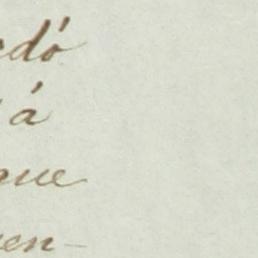 edó
á
que
en-